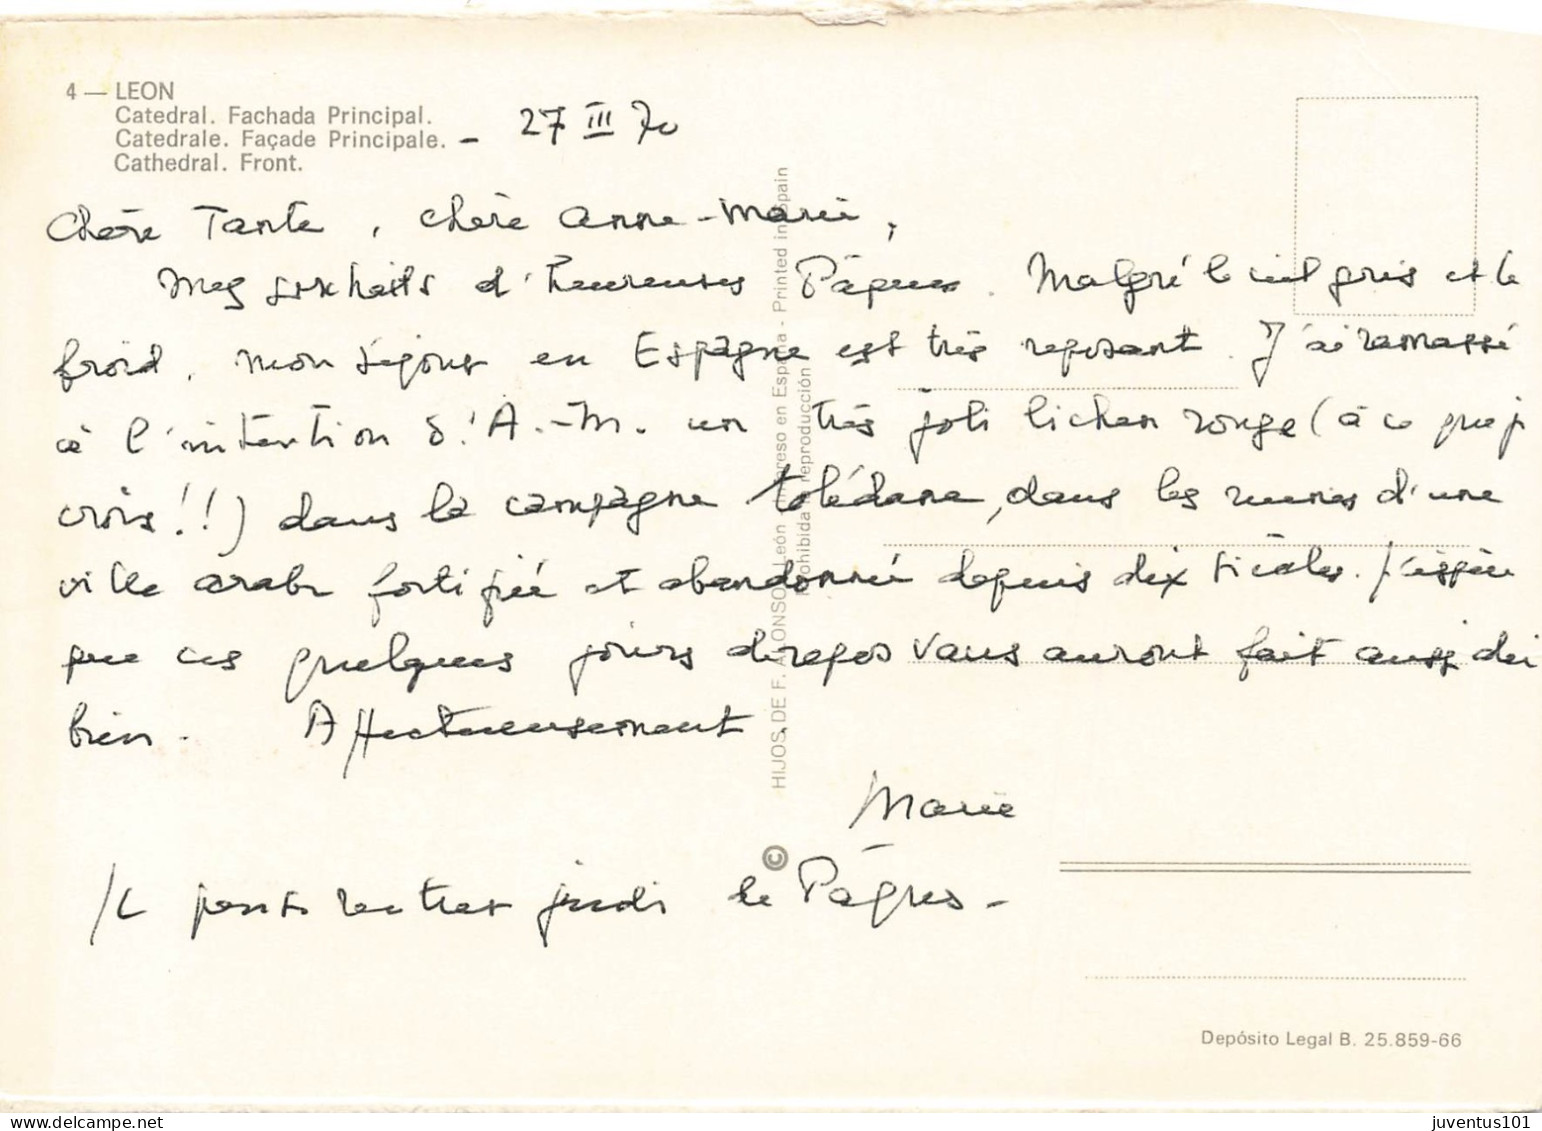 4 — LEON
Catedral. Fachada Principal.
Catedrale. Façade Principale.
Cathedral. Front.
- 27 III 70
Chère Tante, chère Anne-Marie,
Mes souhaits d'heureuses Pâques. Malgré le ciel gris et le
froid, mon séjour en Espagne est très reposant. J'ai ramassé
à l'intention d'A.-M. un très joli lichen rouge (à ce que j
crois!!) dans la campagne tolédane, dans les ruines d'une
ville arabe fortifiée et abandonnée depuis dix siècles. J'espère
que ces quelques jours de repos vous auront fait aussi du
bien. Affectueusement.
Marie
Je pense rentrer jeudi de Pâques -
HIJOS DE F. ALONSO León Impreso en España - Printed in Spain
Prohibida reproducción
©
Depósito Legal B. 25.859-66
juventus101